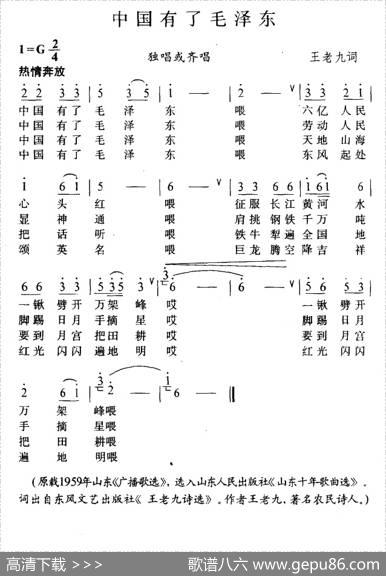 中国有了毛泽东
1=G 2/4
独唱或齐唱
王老九词
热情奔放
中国有了毛泽东喂六亿人民
中国有了毛泽东喂劳动人民
中国有了毛泽东喂天地山海
中国有了毛泽东喂东风起处
心头红喂征服长江黄河水
显神通喂肩挑钢铁千万吨
把话听喂铁牛犁遍全国地
颂英名喂巨龙腾空降吉祥
一锹劈开万架峰哎一锹劈开
脚踢日月手摘星哎脚踢日月
要到月宫把田耕哎要到月宫
红光闪闪遍地明哎红光闪闪
万架峰喂
手摘星喂
把田耕喂
遍地明喂
(原载1959年山东《广播歌选》,选入山东人民出版社《山东十年歌曲选》。
词出自东风文艺出版社《王老九诗选》。作者王老九,著名农民诗人。)
高清下载 >>>
歌谱八六 www.gepu86.com